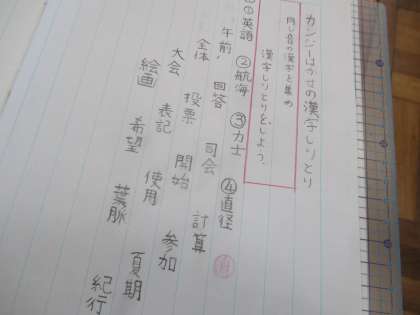 カンジーはかせの漢字しりとり
同じ音の漢字を集め
漢字しりとりをしよう。
①英語 ②航海 ③力士 ④直径
午前 回答 司会 計算
全体 投票 開始 参加
大会 表記 使用 夏期
絵画 希望 葉脈 紀行